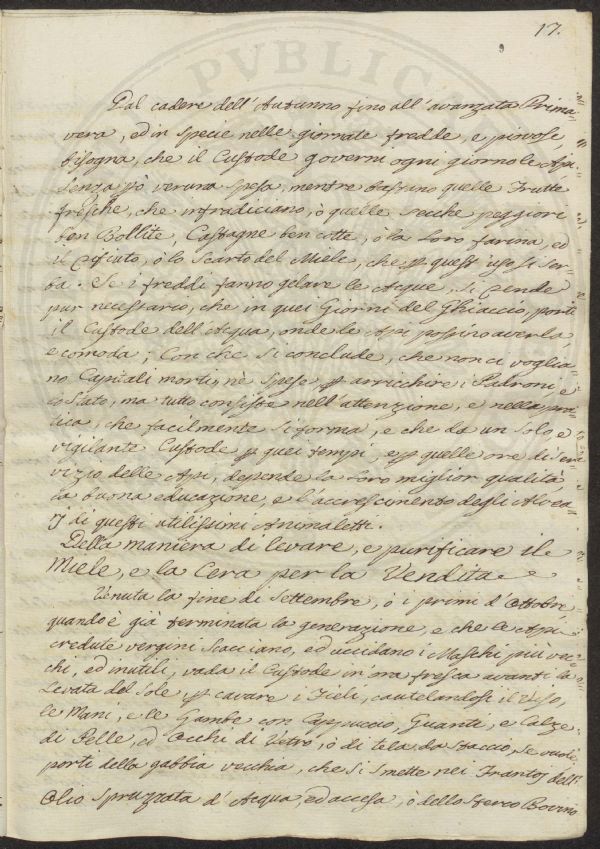 17.
Dal cadere dell'Autunno fino all'avanzata Prima
vera, ed in specie nelle giornate fredde, e piovose,
bisogna, che il Custode governi ogni giorno le Api
senza però veruna spesa, mentre bastino quelle Frutte
fresche, che infradiciano, ò quelle secche peggiori
ben Bollite, Castagne ben cotte, ò la loro farina, ed
il ò lo Scarto del Miele, che p quest'uso si ser-
ba. Se i freddi fanno gelare le Acque, si rende
pur necessario, che in quei Giorni del Ghiaccio, porti
il Custode dell'Acqua, onde le Api possino averla,
e comoda; Con che si conclude, che non ci voglia-
no Capitali morti, nè Spese p arricchire i Padroni, e
lo Stato, ma tutto consiste nell'attenzione, e nella pra
tica, che facilmente si forma, e che da un solo, e
vigilante Custode p quei tempi, e p quelle ore di ser
vizio delle Api, depende la loro miglior qualità
la buona educazione, e l'accrescimento degli Alvea-
rj di questi utilissimi Animaletti.
Della maniera di levare, e purificare il
Miele, e la Cera per la Vendita
Venuta la fine di Settembre, ò i primi d'Ottobre
quando è già terminata la generazione, e che le Api
credute vergini scacciano, ed uccidano i Maschi più vec
chi, ed inutili, vada il Custode in ora fresca avanti la
Levata del Sole p cavare i Fieli, cautelandosi il Viso,
le Mani, e le Gambe con Cappuccio, Guanti, e Calze
di Pelle, ed Occhi di Vetro, ò di tela da staccio, se vuole
porti della gabbia vecchia, che si smette nei Frantoj dell'
Olio spruzzata d'Acqua, ed accesa, ò dello sterco Bovino